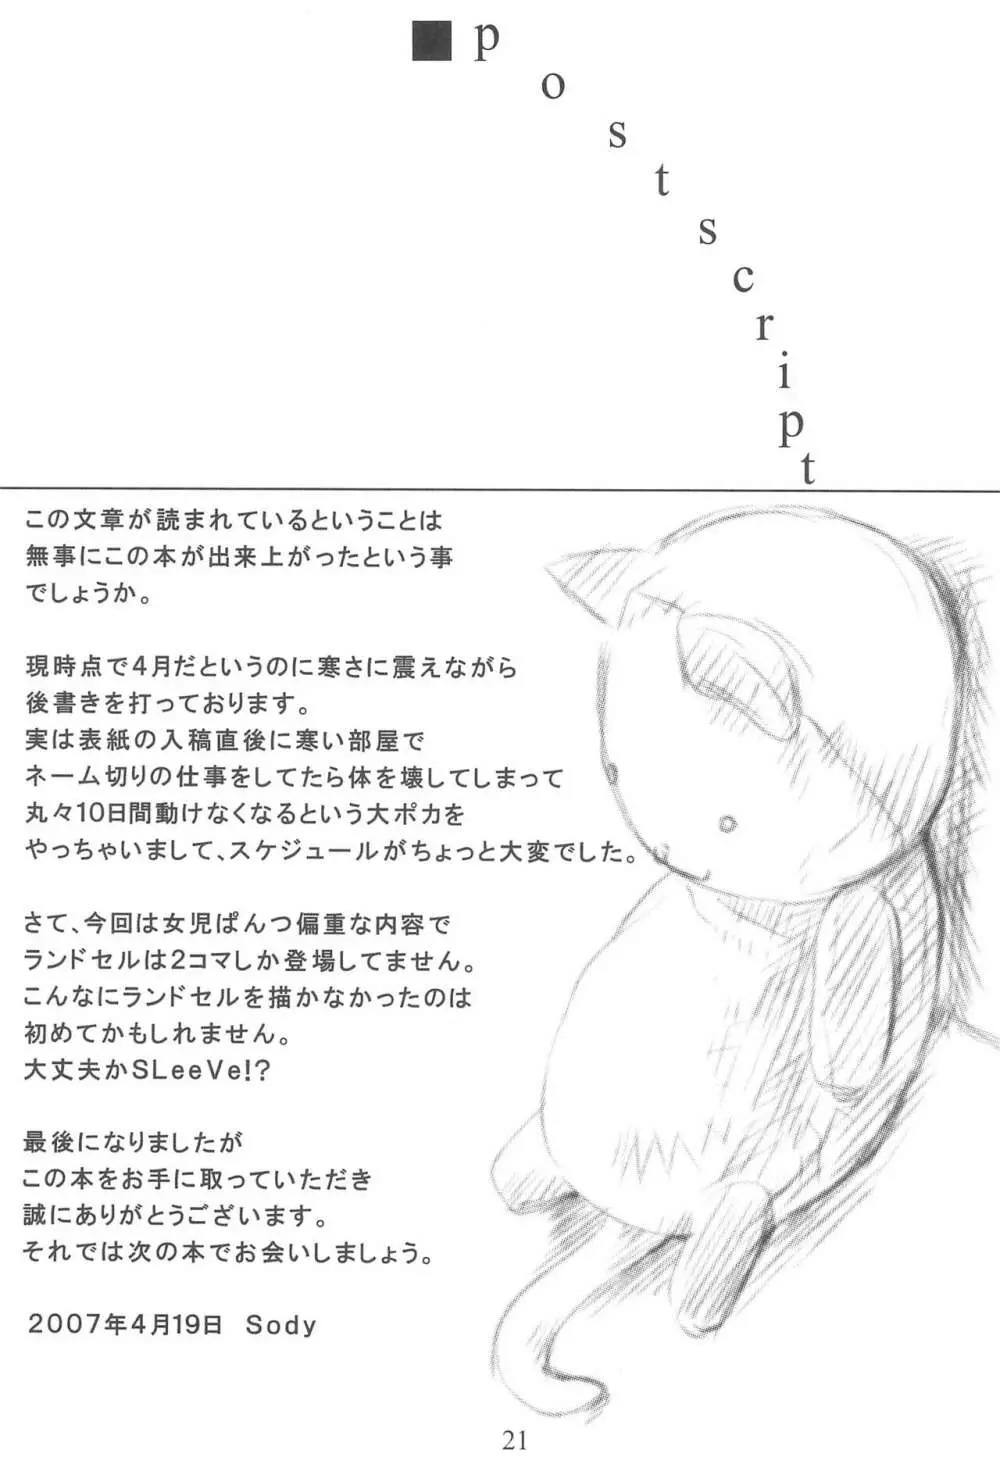 ■postscript
この文章が読まれているということは
無事にこの本が出来上がったという事
でしょうか。
現時点で4月だというのに寒さに震えながら
後書きを打っております。
実は表紙の入稿直後に寒い部屋で
ネーム切りの仕事をしてたら体を壊してしまって
丸々10日間動けなくなるという大ポカを
やっちゃいまして、スケジュールがちょっと大変でした。
さて、今回は女児ぱんつ偏重な内容で
ランドセルは2コマしか登場してません。
こんなにランドセルを描かなかったのは
初めてかもしれません。
大丈夫かSLeeVe!?
最後になりましたが
この本をお手に取っていただき
誠にありがとうございます。
それでは次の本でお会いしましょう。
2007年4月19日 Sody
21